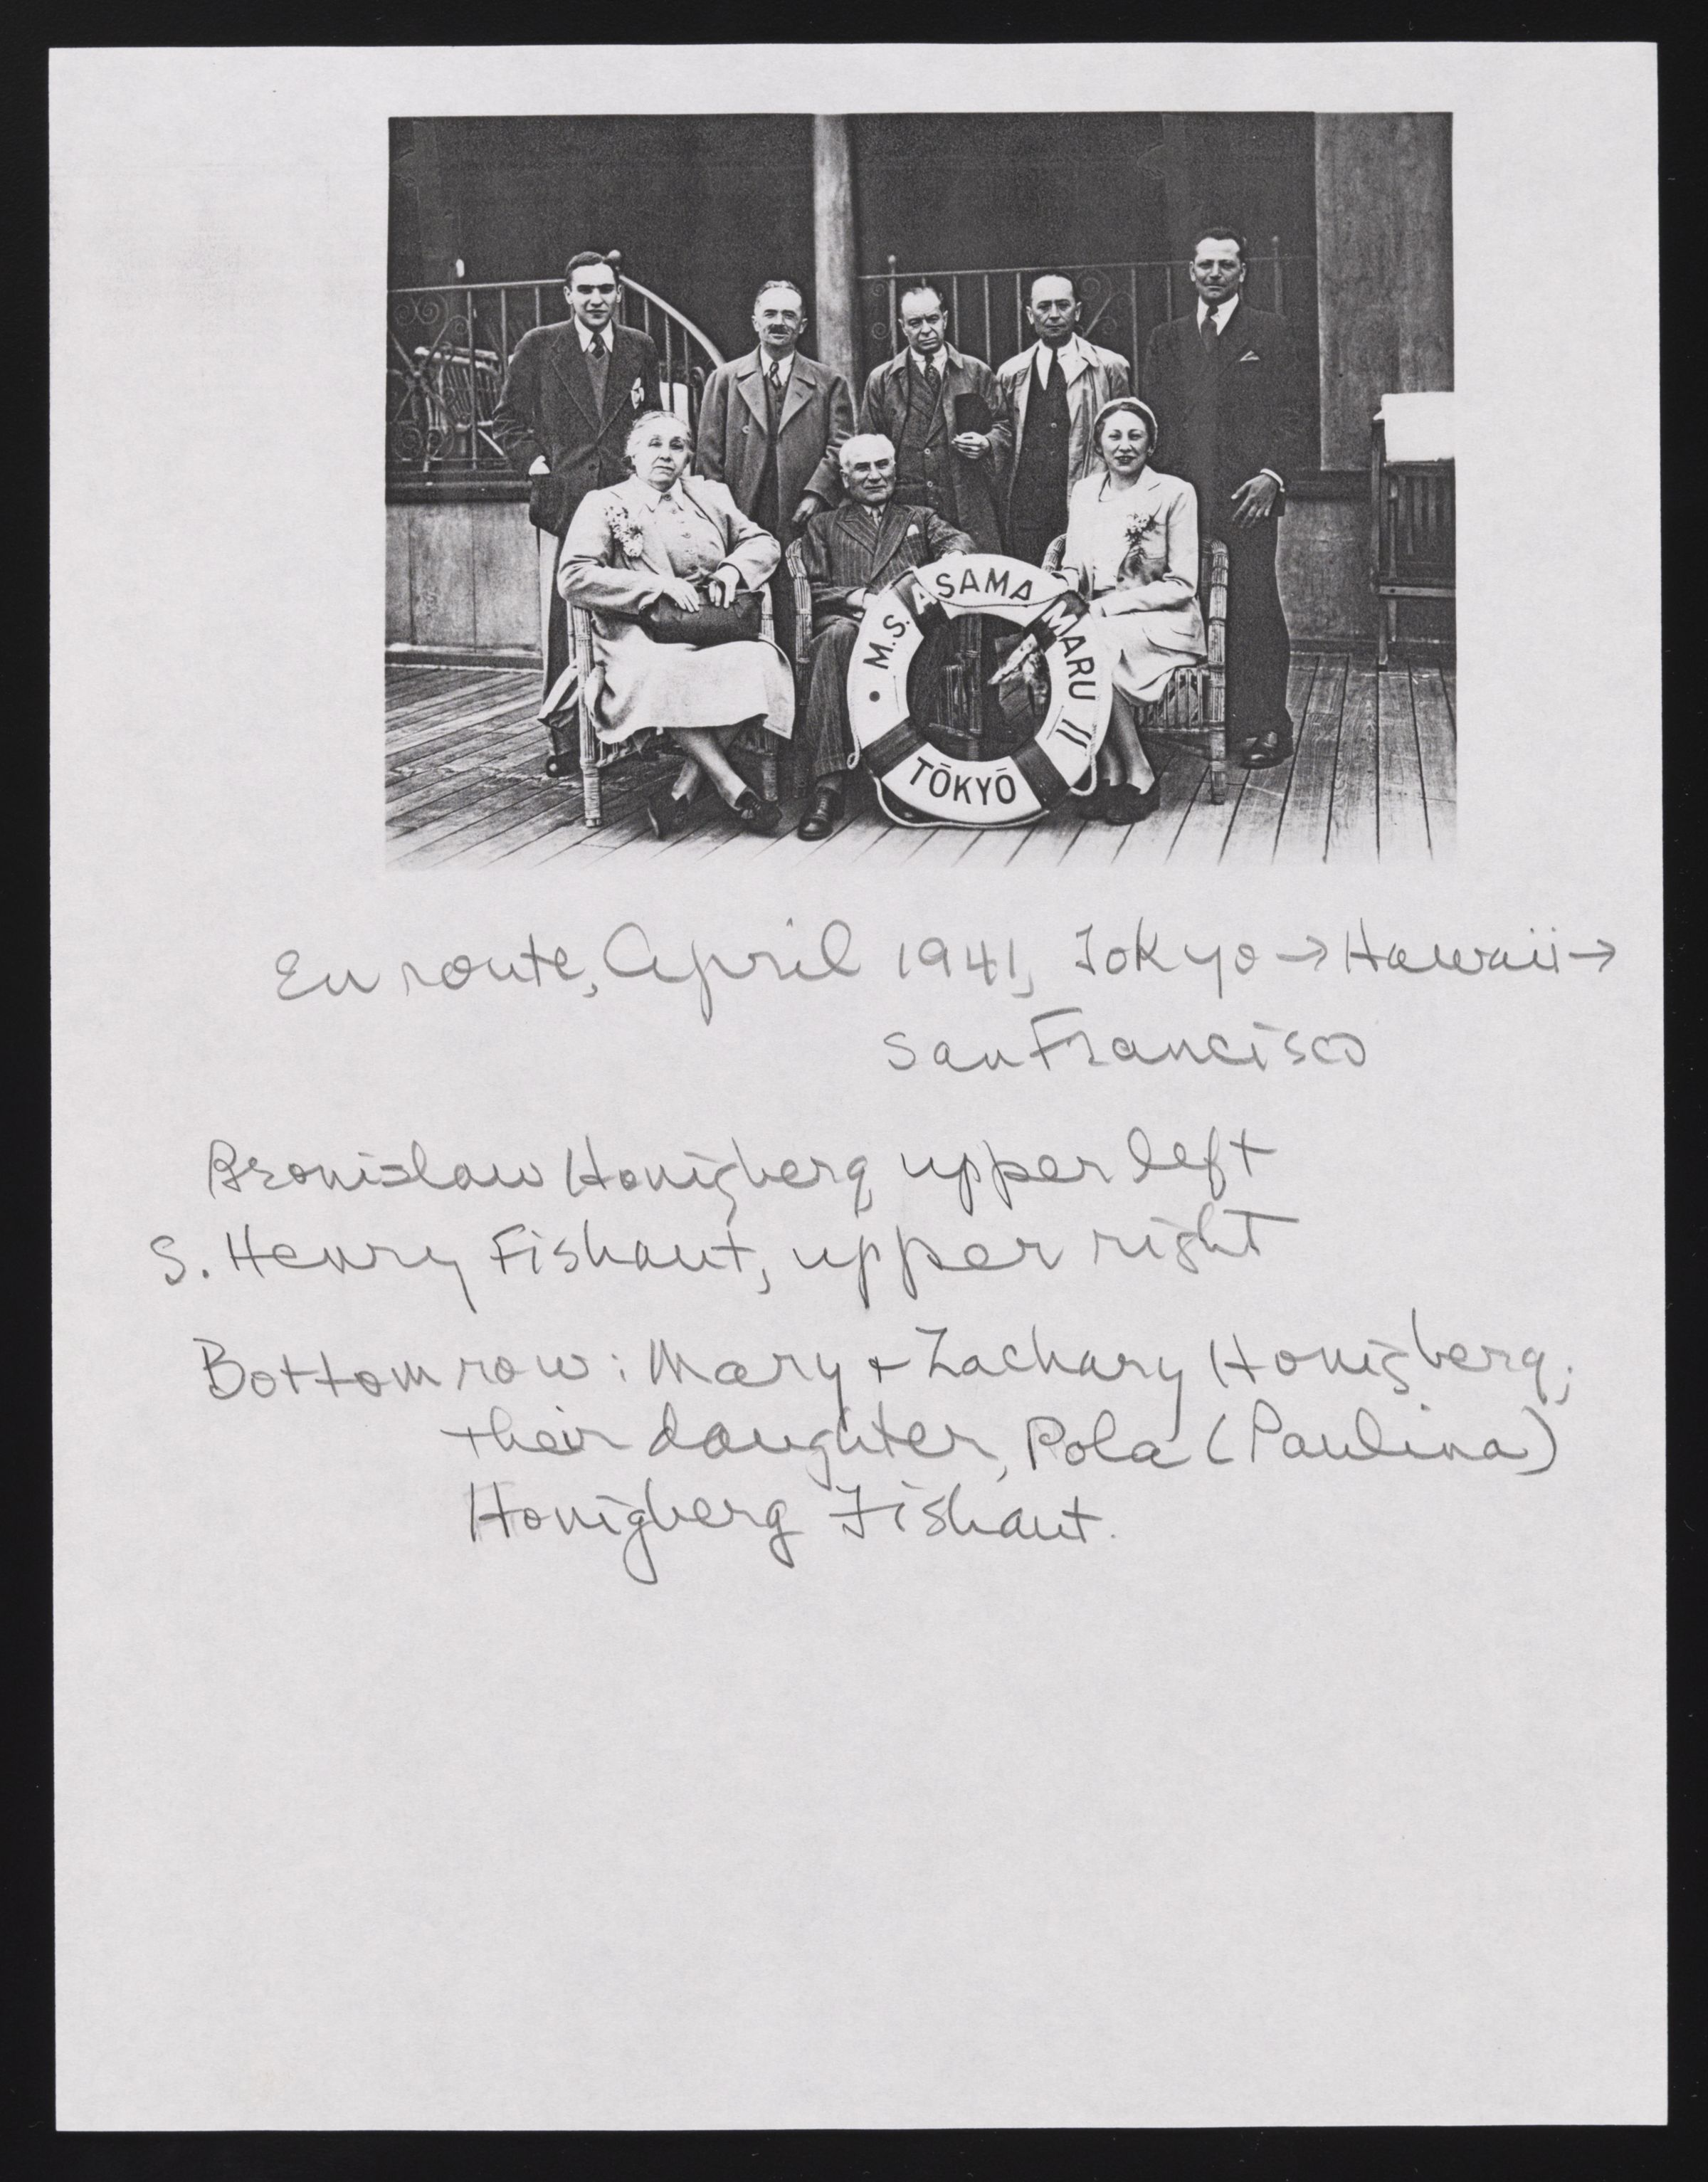 M.S. ASAMA MARU
TŌKYŌ
En route, April 1941, Tokyo → Hawaii →
San Francisco
Bronislaw Honigberg upper left
S. Henry Fishaut, upper right
Bottom row: Mary + Zachary Honigberg;
their daughter, Pola (Paulina)
Honigberg Fishaut.